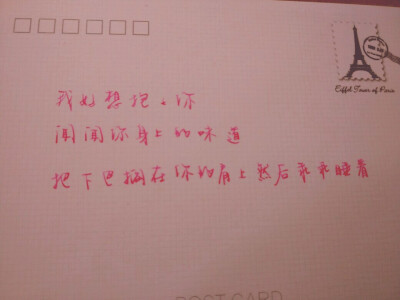 Eiffel Tower of Paris
我好想抱抱你
闻闻你身上的味道
把下巴搁在你的肩上然后乖乖睡着
POST CARD